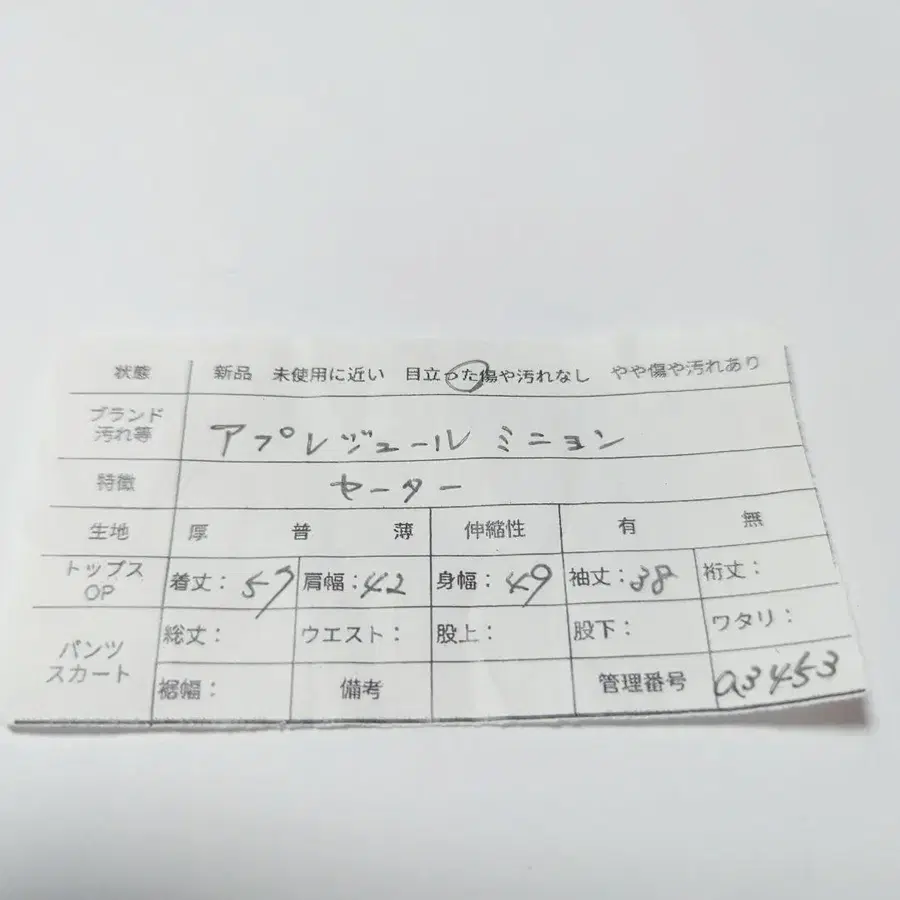 状態 新品 未使用に近い 目立った傷や汚れなし やや傷や汚れあり
ブランド
汚れ等 アプレジュール ミニョン
特徴 セーター
生地 厚 普 薄 伸縮性 有 無
トップス
OP 着丈：57 肩幅：42 身幅：49 袖丈：38 裄丈：
パンツ
スカート 総丈： ウエスト： 股上： 股下： ワタリ：
裾幅： 備考 管理番号 a3453